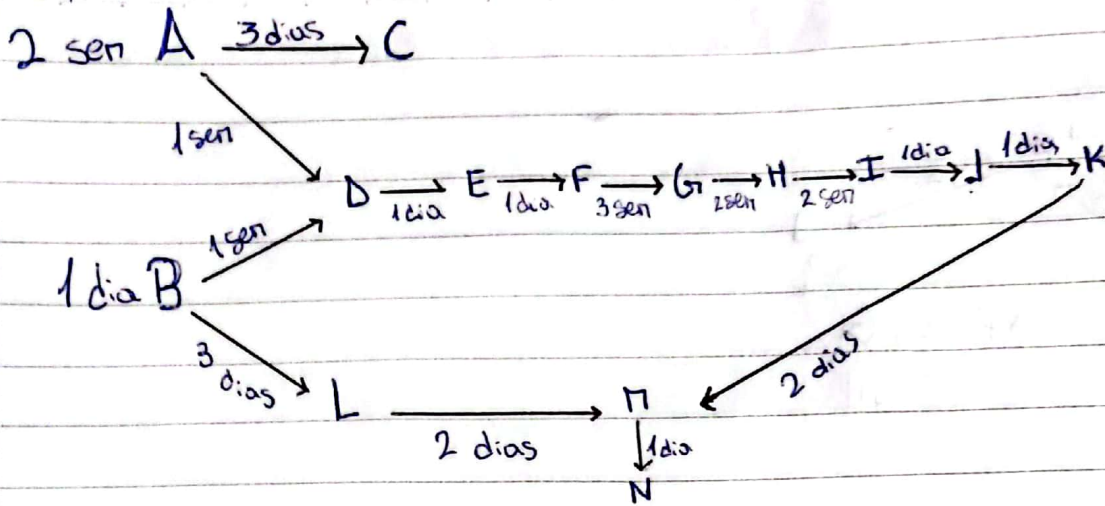 2 sem A 3 dias C
1 sem
D 1 dia E 1 dia F 3 sem G 2 sem H 2 sem I 1 dia J 1 dia K
1 sem
1 dia B
3 dias
2 dias
L 2 dias M
1 dia
N